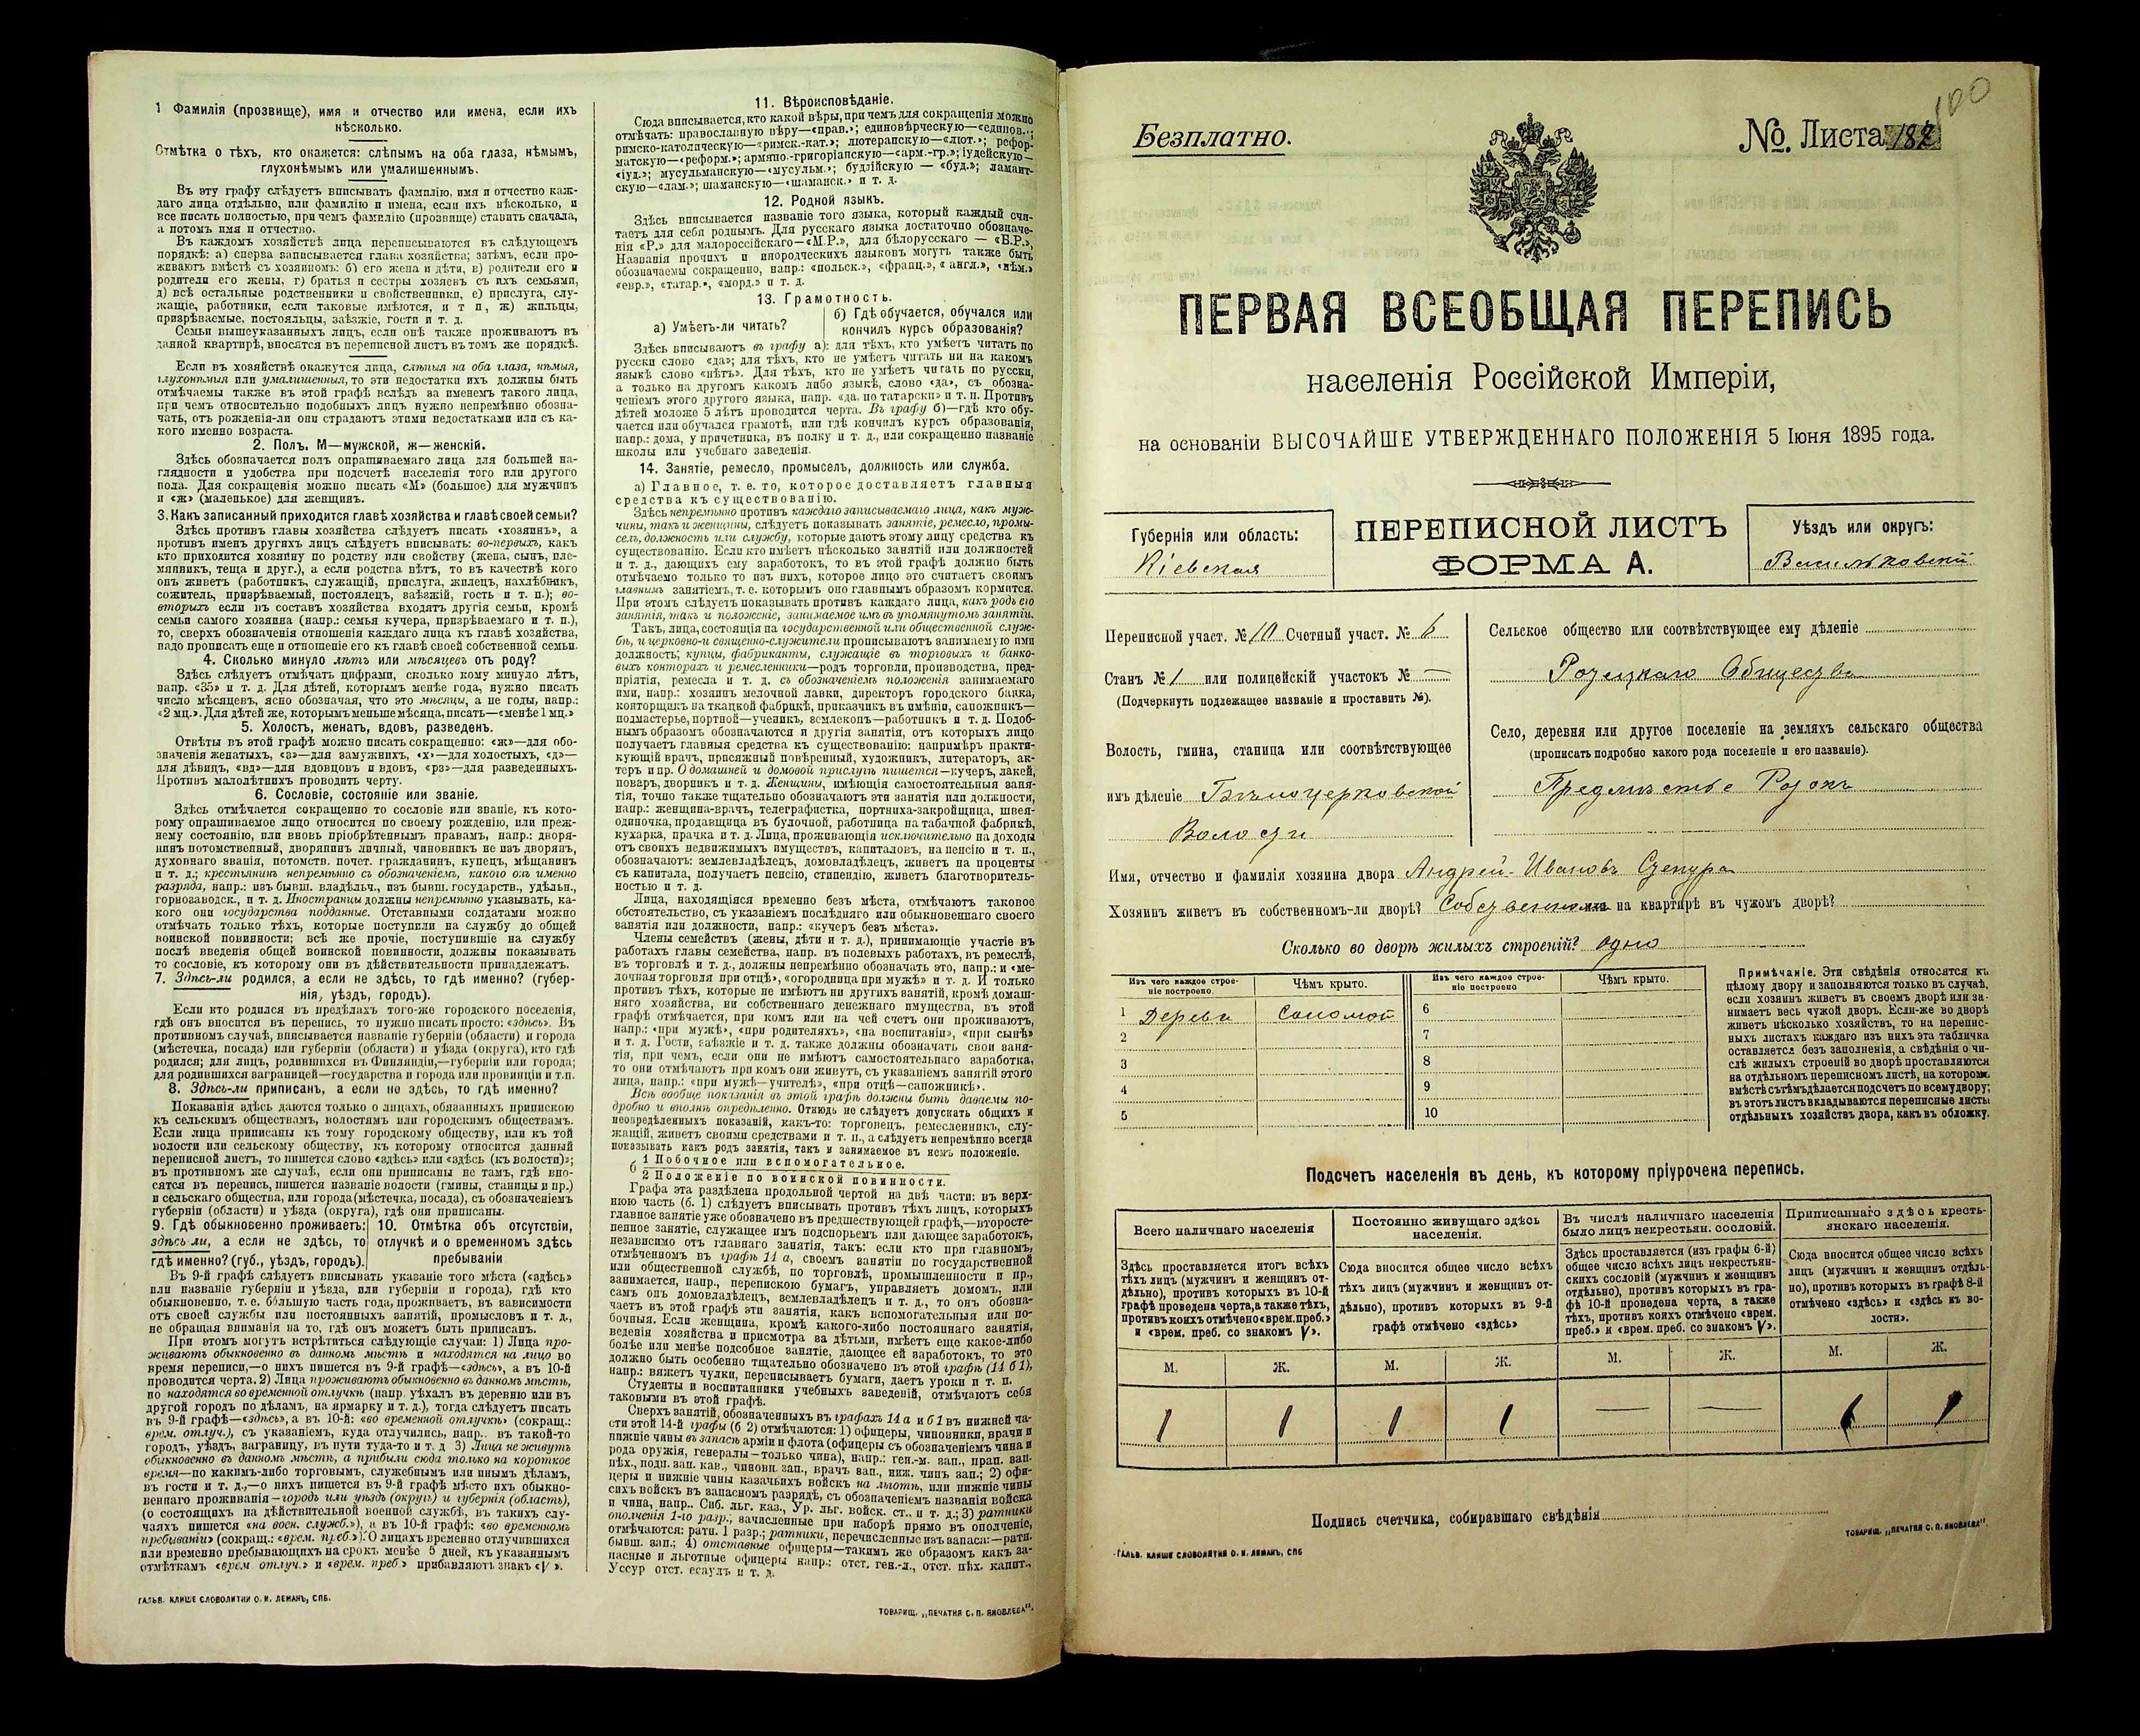 1 Фамилія (прозвище), имя и отчество или имена, если ихъ
нѣсколько.
Отмѣтка о тѣхъ, кто окажется: слѣпымъ на оба глаза, нѣмымъ,
глухонѣмымъ или умалишеннымъ.
Въ эту графу слѣдуетъ вписывать фамилію, имя и отчество каж-
даго лица отдѣльно, или фамилію и имена, если ихъ нѣсколько, и
все писать полностью, при чемъ фамилію (прозвище) ставить сначала,
а потомъ имя и отчество.
Въ каждомъ хозяйствѣ лица переписываются въ слѣдующемъ
порядкѣ: а) сперва записывается глава хозяйства; затѣмъ, если про-
живаютъ вмѣстѣ съ хозяиномъ: б) его жена и дѣти, в) родители его и
родители его жены, г) братья и сестры хозяевъ съ ихъ семьями,
д) всѣ остальные родственники и свойственники, е) прислуга, слу-
жащіе, работники, если таковые имѣются, и т п, ж) жильцы,
призрѣваемые, постояльцы, заѣзжіе, гости и т. д.
Семьи вышеуказанныхъ лицъ, если онѣ также проживаютъ въ
данной квартирѣ, вносятся въ переписной листъ въ томъ же порядкѣ.
Если въ хозяйствѣ окажутся лица, слѣпыя на оба глаза, нѣмыя,
глухонѣмыя или умалишенныя, то эти недостатки ихъ должны быть
отмѣчаемы также въ этой графѣ вслѣдъ за именемъ такого лица,
при чемъ относительно подобныхъ лицъ нужно непремѣнно обозна-
чать, отъ рожденія-ли они страдаютъ этими недостатками или съ ка-
кого именно возраста.
2. Полъ, М—мужской, ж—женскій.
Здѣсь обозначается полъ опрашиваемаго лица для большей на-
глядности и удобства при подсчетѣ населенія того или другого
пола. Для сокращенія можно писать «М» (большое) для мужчинъ
и «ж» (маленькое) для женщинъ.
3. Какъ записанный приходится главѣ хозяйства и главѣ своей семьи?
Здѣсь противъ главы хозяйства слѣдуетъ писать «хозяинъ», а
противъ именъ другихъ лицъ слѣдуетъ вписывать: во-первыхъ, какъ
кто приходится хозяину по родству или свойству (жена, сынъ, пле-
мянникъ, теща и друг.), а если родства нѣтъ, то въ качествѣ кого
онъ живетъ (работникъ, служащій, прислуга, жилецъ, нахлѣбникъ,
сожитель, призрѣваемый, постоялецъ, заѣзжій, гость и т. п.); во-
вторыхъ если въ составъ хозяйства входятъ другія семьи, кромѣ
семьи самого хозяина (напр.: семья кучера, призрѣваемаго и т. п.),
то, сверхъ обозначенія отношенія каждаго лица къ главѣ хозяйства,
надо прописать еще и отношеніе его къ главѣ своей собственной семьи.
4. Сколько минуло лѣтъ или мѣсяцевъ отъ роду?
Здѣсь слѣдуетъ отмѣчать цифрами, сколько кому минуло лѣтъ,
напр. «35» и т. д. Для дѣтей, которымъ менѣе года, нужно писать
число мѣсяцевъ, ясно обозначая, что это мѣсяцы, а не годы, напр.:
«2 мц.». Для дѣтей же, которымъ меньше мѣсяца, писать—«менѣе 1 мц.»
5. Холостъ, женатъ, вдовъ, разведенъ.
Отвѣты въ этой графѣ можно писать сокращенно: «ж»—для обо-
значенія женатыхъ, «з»—для замужнихъ, «х»—для холостыхъ, «д»—
для дѣвицъ, «вд»—для вдовцовъ и вдовъ, «рз»—для разведенныхъ.
Противъ малолѣтнихъ проводить черту.
6. Сословіе, состояніе или званіе.
Здѣсь отмѣчается сокращенно то сословіе или званіе, къ кото-
рому опрашиваемое лицо относится по своему рожденію, или преж-
нему состоянію, или вновь пріобрѣтеннымъ правамъ, напр.: дворя-
нинъ потомственный, дворянинъ личный, чиновникъ не изъ дворянъ,
духовнаго званія, потомств. почет. гражданинъ, купецъ, мѣщанинъ
и т. д.; крестьянинъ непремѣнно съ обозначеніемъ, какого онъ именно
разряда, напр.: изъ бывш. владѣльч., изъ бывш. государств., удѣльн.,
горнозаводск., и т. д. Иностранцы должны непремѣнно указывать, ка-
кого они государства подданные. Отставными солдатами можно
отмѣчать только тѣхъ, которые поступили на службу до общей
воинской повинности; всѣ же прочіе, поступившіе на службу
послѣ введенія общей воинской повинности, должны показывать
то сословіе, къ которому они въ дѣйствительности принадлежатъ.
7. Здѣсь-ли родился, а если не здѣсь, то гдѣ именно? (губер-
нія, уѣздъ, городъ).
Если кто родился въ предѣлахъ того-же городского поселенія,
гдѣ онъ вносится въ перепись, то нужно писать просто: «здѣсь». Въ
противномъ случаѣ, вписывается названіе губерніи (области) и города
(мѣстечка, посада) или губерніи (области) и уѣзда (округа), кто гдѣ
родился; для лицъ, родившихся въ Финляндіи,—губерніи или города;
для родившихся заграницей—государства и города или провинціи и т.п.
8. Здѣсь-ли приписанъ, а если не здѣсь, то гдѣ именно?
Показанія здѣсь даются только о лицахъ, обязанныхъ припискою
къ сельскимъ обществамъ, волостямъ или городскимъ обществамъ.
Если лица приписаны къ тому городскому обществу, или къ той
волости или сельскому обществу, къ которому относится данный
переписной листъ, то пишется слово «здѣсь» или «здѣсь (къ волости)»;
въ противномъ же случаѣ, если они приписаны не тамъ, гдѣ вно-
сятся въ перепись, пишется названіе волости (гмины, станицы и пр.)
и сельскаго общества, или города (мѣстечка, посада), съ обозначеніемъ
губерніи (области) и уѣзда (округа), гдѣ они приписаны.
9. Гдѣ обыкновенно проживаетъ:
здѣсь-ли, а если не здѣсь, то
гдѣ именно? (губ., уѣздъ, городъ).
10. Отмѣтка объ отсутствіи,
отлучкѣ и о временномъ здѣсь
пребываніи
Въ 9-й графѣ слѣдуетъ вписывать указаніе того мѣста («здѣсь»
или названіе губерніи и уѣзда, или губерніи и города), гдѣ кто
обыкновенно, т. е. бо́льшую часть года, проживаетъ, въ зависимости
отъ своей службы или постоянныхъ занятій, промысловъ и т. д.,
не обращая вниманія на то, гдѣ онъ можетъ быть приписанъ.
При этомъ могутъ встрѣтиться слѣдующіе случаи: 1) Лица про-
живаютъ обыкновенно въ данномъ мѣстѣ и находятся на лицо во
время переписи,—о нихъ пишется въ 9-й графѣ—«здѣсь», а въ 10-й
проводится черта. 2) Лица проживаютъ обыкновенно въ данномъ мѣстѣ,
но находятся во временной отлучкѣ (напр. уѣхалъ въ деревню или въ
другой городъ по дѣламъ, на ярмарку и т. д.), тогда слѣдуетъ писать
въ 9-й графѣ—«здѣсь», а въ 10-й: «во временной отлучкѣ» (сокращ.:
врем. отлуч.), съ указаніемъ, куда отлучились, напр.. въ такой-то
городъ, уѣздъ, заграницу, въ пути туда-то и т. д 3) Лица не живутъ
обыкновенно въ данномъ мѣстѣ, а прибыли сюда только на короткое
время—по какимъ-либо торговымъ, служебнымъ или инымъ дѣламъ,
въ гости и т. д.,—о нихъ пишется въ 9-й графѣ мѣсто ихъ обыкно-
веннаго проживанія—городъ или уѣздъ (округъ) и губернія (область),
(о состоящихъ на дѣйствительной военной службѣ, въ такихъ слу-
чаяхъ пишется «на воен. служб.»), а въ 10-й графѣ: «во временномъ
пребываніи» (сокращ.: «врем. преб.»). О лицахъ временно отлучившихся
или временно пребывающихъ на срокъ менѣе 5 дней, къ указаннымъ
отмѣткамъ «врем. отлуч.» и «врем. преб.» прибавляютъ знакъ «V».
ГАЛЬВ. КЛИШЕ СЛОВОЛИТНИ О. И. ЛЕМАНЪ, СПБ.
11. Вѣроисповѣданіе.
Сюда вписывается, кто какой вѣры, при чемъ для сокращенія можно
отмѣчать: православную вѣру—«прав.»; единовѣрческую—«единов.»;
римско-католическую—«римск.-кат.»; лютеранскую—«лют.»; рефор-
матскую—«реформ.»; армяно.-григоріанскую—«арм.-гр.»; іудейскую—
«іуд.»; мусульманскую—«мусульм.»; буддійскую — «буд.»; ламаит-
скую—«лам.»; шаманскую—«шаманск.» и т. д.
12. Родной языкъ.
Здѣсь вписывается названіе того языка, который каждый счи-
таетъ для себя роднымъ. Для русскаго языка достаточно обозначе-
нія «Р.» для малороссійскаго—«М.Р.», для бѣлорусскаго — «Б.Р.»,
Названія прочихъ и инородческихъ языковъ могутъ также быть
обозначаемы сокращенно, напр.: «польск.», «франц.», « англ.», «нѣм.»
«евр.», «татар.», «морд.» и т. д.
13. Грамотность.
а) Умѣетъ-ли читать?
б) Гдѣ обучается, обучался или
кончилъ курсъ образованія?
Здѣсь вписываютъ въ графу а): для тѣхъ, кто умѣетъ читать по
русски слово «да»; для тѣхъ, кто не умѣетъ читать ни на какомъ
языкѣ слово «нѣтъ». Для тѣхъ, кто не умѣетъ читать по русски,
а только на другомъ какомъ либо языкѣ, слово «да», съ обозна-
ченіемъ этого другого языка, напр. «да, по татарски» и т. п. Противъ
дѣтей моложе 5 лѣтъ проводится черта. Въ графу б)—гдѣ кто обу-
чается или обучался грамотѣ, или гдѣ кончилъ курсъ образованія,
напр.: дома, у причетника, въ полку и т. д., или сокращенно названіе
школы или учебнаго заведенія.
14. Занятіе, ремесло, промыселъ, должность или служба.
а) Главное, т. е. то, которое доставляетъ главныя
средства къ существованію.
Здѣсь непремѣнно противъ каждаго записываемаго лица, какъ муж-
чины, такъ и женщины, слѣдуетъ показывать занятіе, ремесло, промы-
селъ, должность или службу, которые даютъ этому лицу средства къ
существованію. Если кто имѣетъ нѣсколько занятій или должностей
и т. д., дающихъ ему заработокъ, то въ этой графѣ должно быть
отмѣчаемо только то изъ нихъ, которое лицо это считаетъ своимъ
главнымъ занятіемъ, т. е. которымъ оно главнымъ образомъ кормится.
При этомъ слѣдуетъ показывать противъ каждаго лица, какъ родъ его
занятія, такъ и положеніе, занимаемое имъ въ упомянутомъ занятіи.
Такъ, лица, состоящія на государственной или общественной служ-
бѣ, и церковно-и священно-служители прописываютъ занимаемую ими
должность; купцы, фабриканты, служащіе въ торговыхъ и банко-
выхъ конторахъ и ремесленники—родъ торговли, производства, пред-
пріятія, ремесла и т. д. съ обозначеніемъ положенія занимаемаго
ими, напр.: хозяинъ мелочной лавки, директоръ городского банка,
конторщикъ на ткацкой фабрикѣ, приказчикъ въ имѣніи, сапожникъ—
подмастерье, портной—ученикъ, землекопъ—работникъ и т. д. Подоб-
нымъ образомъ обозначаются и другія занятія, отъ которыхъ лицо
получаетъ главныя средства къ существованію: напримѣръ практи-
кующій врачъ, присяжный повѣренный, художникъ, литераторъ, ак-
теръ и пр. О домашней и домовой прислугѣ пишется—кучеръ, лакей,
поваръ, дворникъ и т. д. Женщины, имѣющія самостоятельныя заня-
тія, точно также тщательно обозначаютъ эти занятія или должности,
напр.: женщина-врачъ, телеграфистка, портниха-закройщица, швея-
одиночка, продавщица въ булочной, работница на табачной фабрикѣ,
кухарка, прачка и т. д. Лица, проживающія исключительно на доходы
отъ своихъ недвижимыхъ имуществъ, капиталовъ, на пенсію и т. п.,
обозначаютъ: землевладѣлецъ, домовладѣлецъ, живетъ на проценты
съ капитала, получаетъ пенсію, стипендію, живетъ благотворитель-
ностью и т. д.
Лица, находящіяся временно безъ мѣста, отмѣчаютъ таковое
обстоятельство, съ указаніемъ послѣдняго или обыкновеннаго своего
занятія или должности, напр.: «кучеръ безъ мѣста».
Члены семействъ (жены, дѣти и т. д.), принимающіе участіе въ
работахъ главы семейства, напр. въ полевыхъ работахъ, въ ремеслѣ,
въ торговлѣ и т. д., должны непремѣнно обозначать это, напр.: и «ме-
лочная торговля при отцѣ», «огородница при мужѣ» и т. д. И только
противъ тѣхъ, которые не имѣютъ ни другихъ занятій, кромѣ домаш-
няго хозяйства, ни собственнаго денежнаго имущества, въ этой
графѣ отмѣчается, при комъ или на чей счетъ они проживаютъ,
напр.: «при мужѣ», «при родителяхъ», «на воспитаніи», «при сынѣ»
и т. д. Гости, заѣзжіе и т. д. также должны обозначать свои заня-
тія, при чемъ, если они не имѣютъ самостоятельнаго заработка,
то они отмѣчаютъ при комъ они живутъ, съ указаніемъ занятій этого
лица, напр.: «при мужѣ—учителѣ», «при отцѣ—сапожникѣ».
Всѣ вообще показанія въ этой графѣ должны быть даваемы по-
дробно и вполнѣ опредѣленно. Отнюдь не слѣдуетъ допускать общихъ и
неопредѣленныхъ показаній, какъ-то: торговецъ, ремесленникъ, слу-
жащій, живетъ своими средствами и т. п., а слѣдуетъ непремѣнно всегда
показывать какъ родъ занятія, такъ и занимаемое въ немъ положеніе.
б 1 Побочное или вспомогательное.
2 Положеніе по воинской повинности.
Графа эта раздѣлена продольной чертой на двѣ части: въ верх-
нюю часть (б. 1) слѣдуетъ вписывать противъ тѣхъ лицъ, которыхъ
главное занятіе уже обозначено въ предшествующей графѣ,—второсте-
пенное занятіе, служащее имъ подспорьемъ или дающее заработокъ,
независимо отъ главнаго занятія, такъ: если кто при главномъ,
отмѣченномъ въ графѣ 14 а, своемъ занятіи по государственной
или общественной службѣ, по торговлѣ, промышленности и пр.,
занимается, напр., перепискою бумагъ, управляетъ домомъ, или
самъ онъ домовладѣлецъ, землевладѣлецъ и т. д., то онъ обозна-
чаетъ въ этой графѣ эти занятія, какъ вспомогательныя или по-
бочныя. Если женщина, кромѣ какого-либо постояннаго занятія,
веденія хозяйства и присмотра за дѣтьми, имѣетъ еще какое-либо
болѣе или менѣе подсобное занятіе, дающее ей заработокъ, то это
должно быть особенно тщательно обозначено въ этой графѣ (14 б 1),
напр.: вяжетъ чулки, переписываетъ бумаги, даетъ уроки и т. п.
Студенты и воспитанники учебныхъ заведеній, отмѣчаютъ себя
таковыми въ этой графѣ.
Сверхъ занятій, обозначенныхъ въ графахъ 14 а и б 1 въ нижней ча-
сти этой 14-й графы (б 2) отмѣчаются: 1) офицеры, чиновники, врачи и
нижніе чины въ запасѣ арміи и флота (офицеры съ обозначеніемъ чина и
рода оружія, генералы—только чина), напр.: ген.-м. зап., прап. зап.
пѣх., подп. зап. кав., чиновн. зап., врачъ зап., ниж. чинъ зап.; 2) офи-
церы и нижніе чины казачьихъ войскъ на льготѣ, или нижніе чины
сихъ войскъ въ запасномъ разрядѣ, съ обозначеніемъ названія войска
и чина, напр.. Спб. льг. каз., Ур. льг. войск. ст., и т. д.; 3) ратники
ополченія 1-го разр., зачисленные при наборѣ прямо въ ополченіе,
отмѣчаются: ратн. 1 разр.; ратники, перечисленные изъ запаса:—ратн.
бывш. зап.; 4) отставные офицеры—такимъ же образомъ какъ за-
пасные и льготные офицеры напр.: отст. ген.-л., отст. пѣх. капит.,
Уссур отст. есаулъ и т. д.
ТОВАРИЩ. „ПЕЧАТНЯ С. П. ЯКОВЛЕВА".
100
Безплатно.
№ Листа 182
ПЕРВАЯ ВСЕОБЩАЯ ПЕРЕПИСЬ
населенія Россійской Имперіи,
на основаніи ВЫСОЧАЙШЕ УТВЕРЖДЕННАГО ПОЛОЖЕНІЯ 5 Іюня 1895 года.
Губернія или область:
Кіевская
ПЕРЕПИСНОЙ ЛИСТЪ
ФОРМА А.
Уѣздъ или округъ:
Васильковскій
Переписной участ. № 10 Счетный участ. № 6
Станъ № 1 или полицейскій участокъ № —
(Подчеркнуть подлежащее названіе и проставить №).
Волость, гмина, станица или соотвѣтствующее
имъ дѣленіе Бѣлоцерковской
Волости
Сельское общество или соотвѣтствующее ему дѣленіе
Роѣцкаго Общества
Село, деревня или другое поселеніе на земляхъ сельскаго общества
(прописать подробно какого рода поселеніе и его названіе).
Предмѣстье Ротокъ
Имя, отчество и фамилія хозяина двора Андрей Ивановъ Сцепура
Хозяинъ живетъ въ собственномъ-ли дворѣ? Собственномъ или на квартирѣ въ чужомъ дворѣ?
Сколько во дворѣ жилыхъ строеній? одно
Изъ чего каждое строе-
ніе построено.
Чѣмъ крыто.
Изъ чего каждое строе-
ніе построено
Чѣмъ крыто.
1 Дерева Соломой 6
2 7
3 8
4 9
5 10
Примѣчаніе. Эти свѣдѣнія относятся къ
цѣлому двору и заполняются только въ случаѣ,
если хозяинъ живетъ въ своемъ дворѣ или за-
нимаетъ весь чужой дворъ. Если-же во дворѣ
живетъ нѣсколько хозяйствъ, то на перепис-
ныхъ листахъ каждаго изъ нихъ эта табличка
оставляется безъ заполненія, а свѣдѣнія о чи-
слѣ жилыхъ строеній во дворѣ проставляются
на отдѣльномъ переписномъ листѣ, на которомъ
вмѣстѣ съ тѣмъ дѣлается подсчетъ по всему двору;
въ этотъ листъ вкладываются переписные листы
отдѣльныхъ хозяйствъ двора, какъ въ обложку.
Подсчетъ населенія въ день, къ которому пріурочена перепись.
Всего наличнаго населенія
Здѣсь проставляется итогъ всѣхъ
тѣхъ лицъ (мужчинъ и женщинъ от-
дѣльно), противъ которыхъ въ 10-й
графѣ проведена черта, а также тѣхъ,
противъ коихъ отмѣчено «врем. преб.»
и «врем. преб. со знакомъ V».
Постоянно живущаго здѣсь
населенія.
Сюда вносится общее число всѣхъ
тѣхъ лицъ (мужчинъ и женщинъ от-
дѣльно), противъ которыхъ въ 9-й
графѣ отмѣчено «здѣсь»
Въ числѣ наличнаго населенія
было лицъ некрестьян. сословій.
Здѣсь проставляется (изъ графы 6-й)
общее число всѣхъ лицъ некрестьян-
скихъ сословій (мужчинъ и женщинъ
отдѣльно), противъ которыхъ въ гра-
фѣ 10-й проведена черта, а также
тѣхъ, противъ коихъ отмѣчено «врем.
преб.» и «врем. преб. со знакомъ V».
Приписаннаго здѣсь кресть-
янскаго населенія.
Сюда вносится общее число всѣхъ
лицъ (мужчинъ и женщинъ отдѣль-
но), противъ которыхъ въ графѣ 8-й
отмѣчено «здѣсь» и «здѣсь къ во-
лости».
М. Ж. М. Ж. М. Ж. М. Ж.
1 1 1 1 — — 1 1
Подпись счетчика, собиравшаго свѣдѣнія
ГАЛЬВ. КЛИШЕ СЛОВОЛИТНИ О. И. ЛЕМАНЪ, СПБ
ТОВАРИЩ. „ПЕЧАТНЯ С. П. ЯКОВЛЕВА".